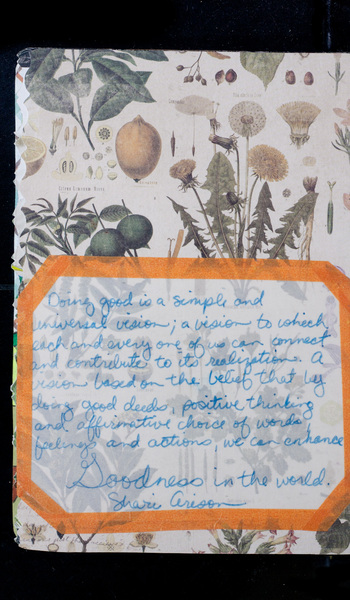 Doing good is a simple and
universal vision; a vision to which
each and every one of us can connect
and contribute to its realization. A
vision based on the belief that by
doing good deeds, positive thinking
and affirmative choice of words,
feelings and actions, we can enhance
Goodness in the world.
Shari Arison